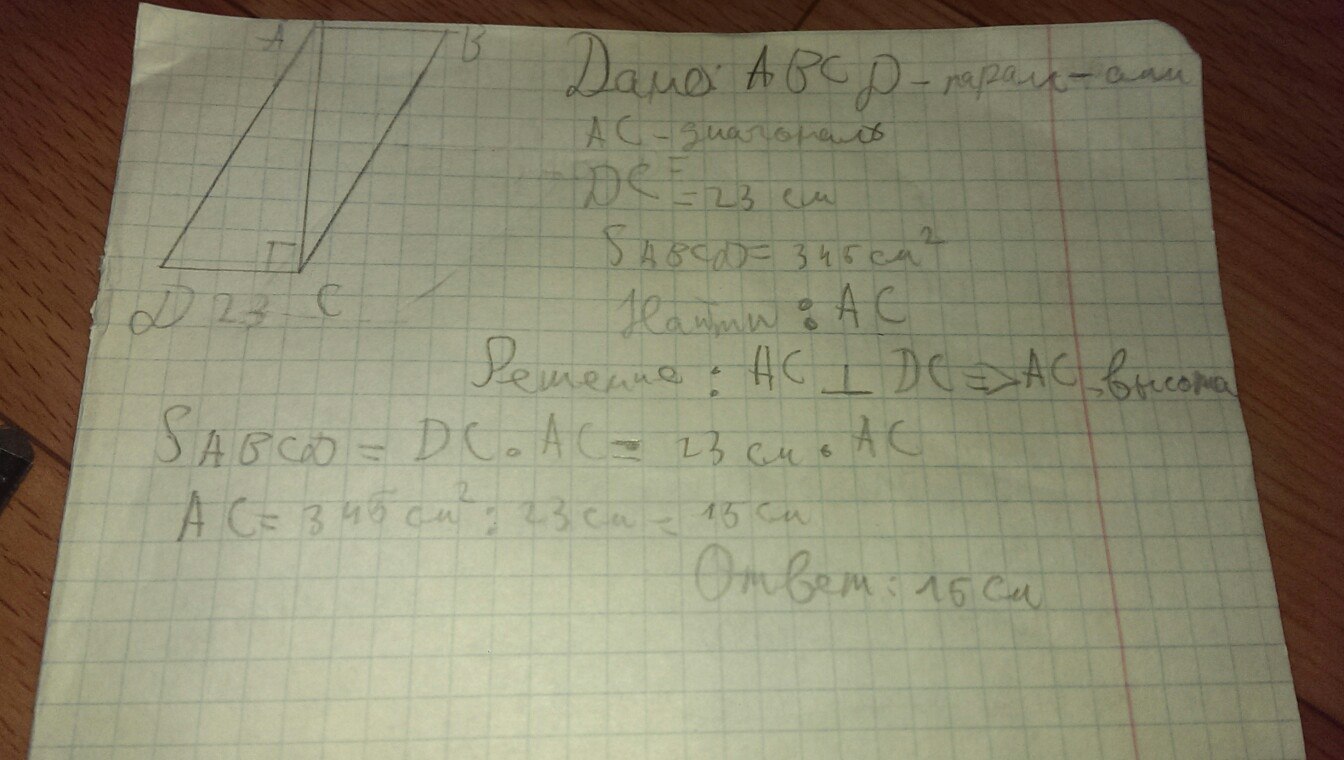 A B
D 23 C
Дано: ABCD - парал-амм
AC - диагональ
DC = 23 см
SABCD = 345 см²
Найти : AC
Решение : AC ⊥ DC => AC высота
SABCD = DC · AC = 23 см · AC
AC = 345 см² : 23 см = 15 см
Ответ : 15 см